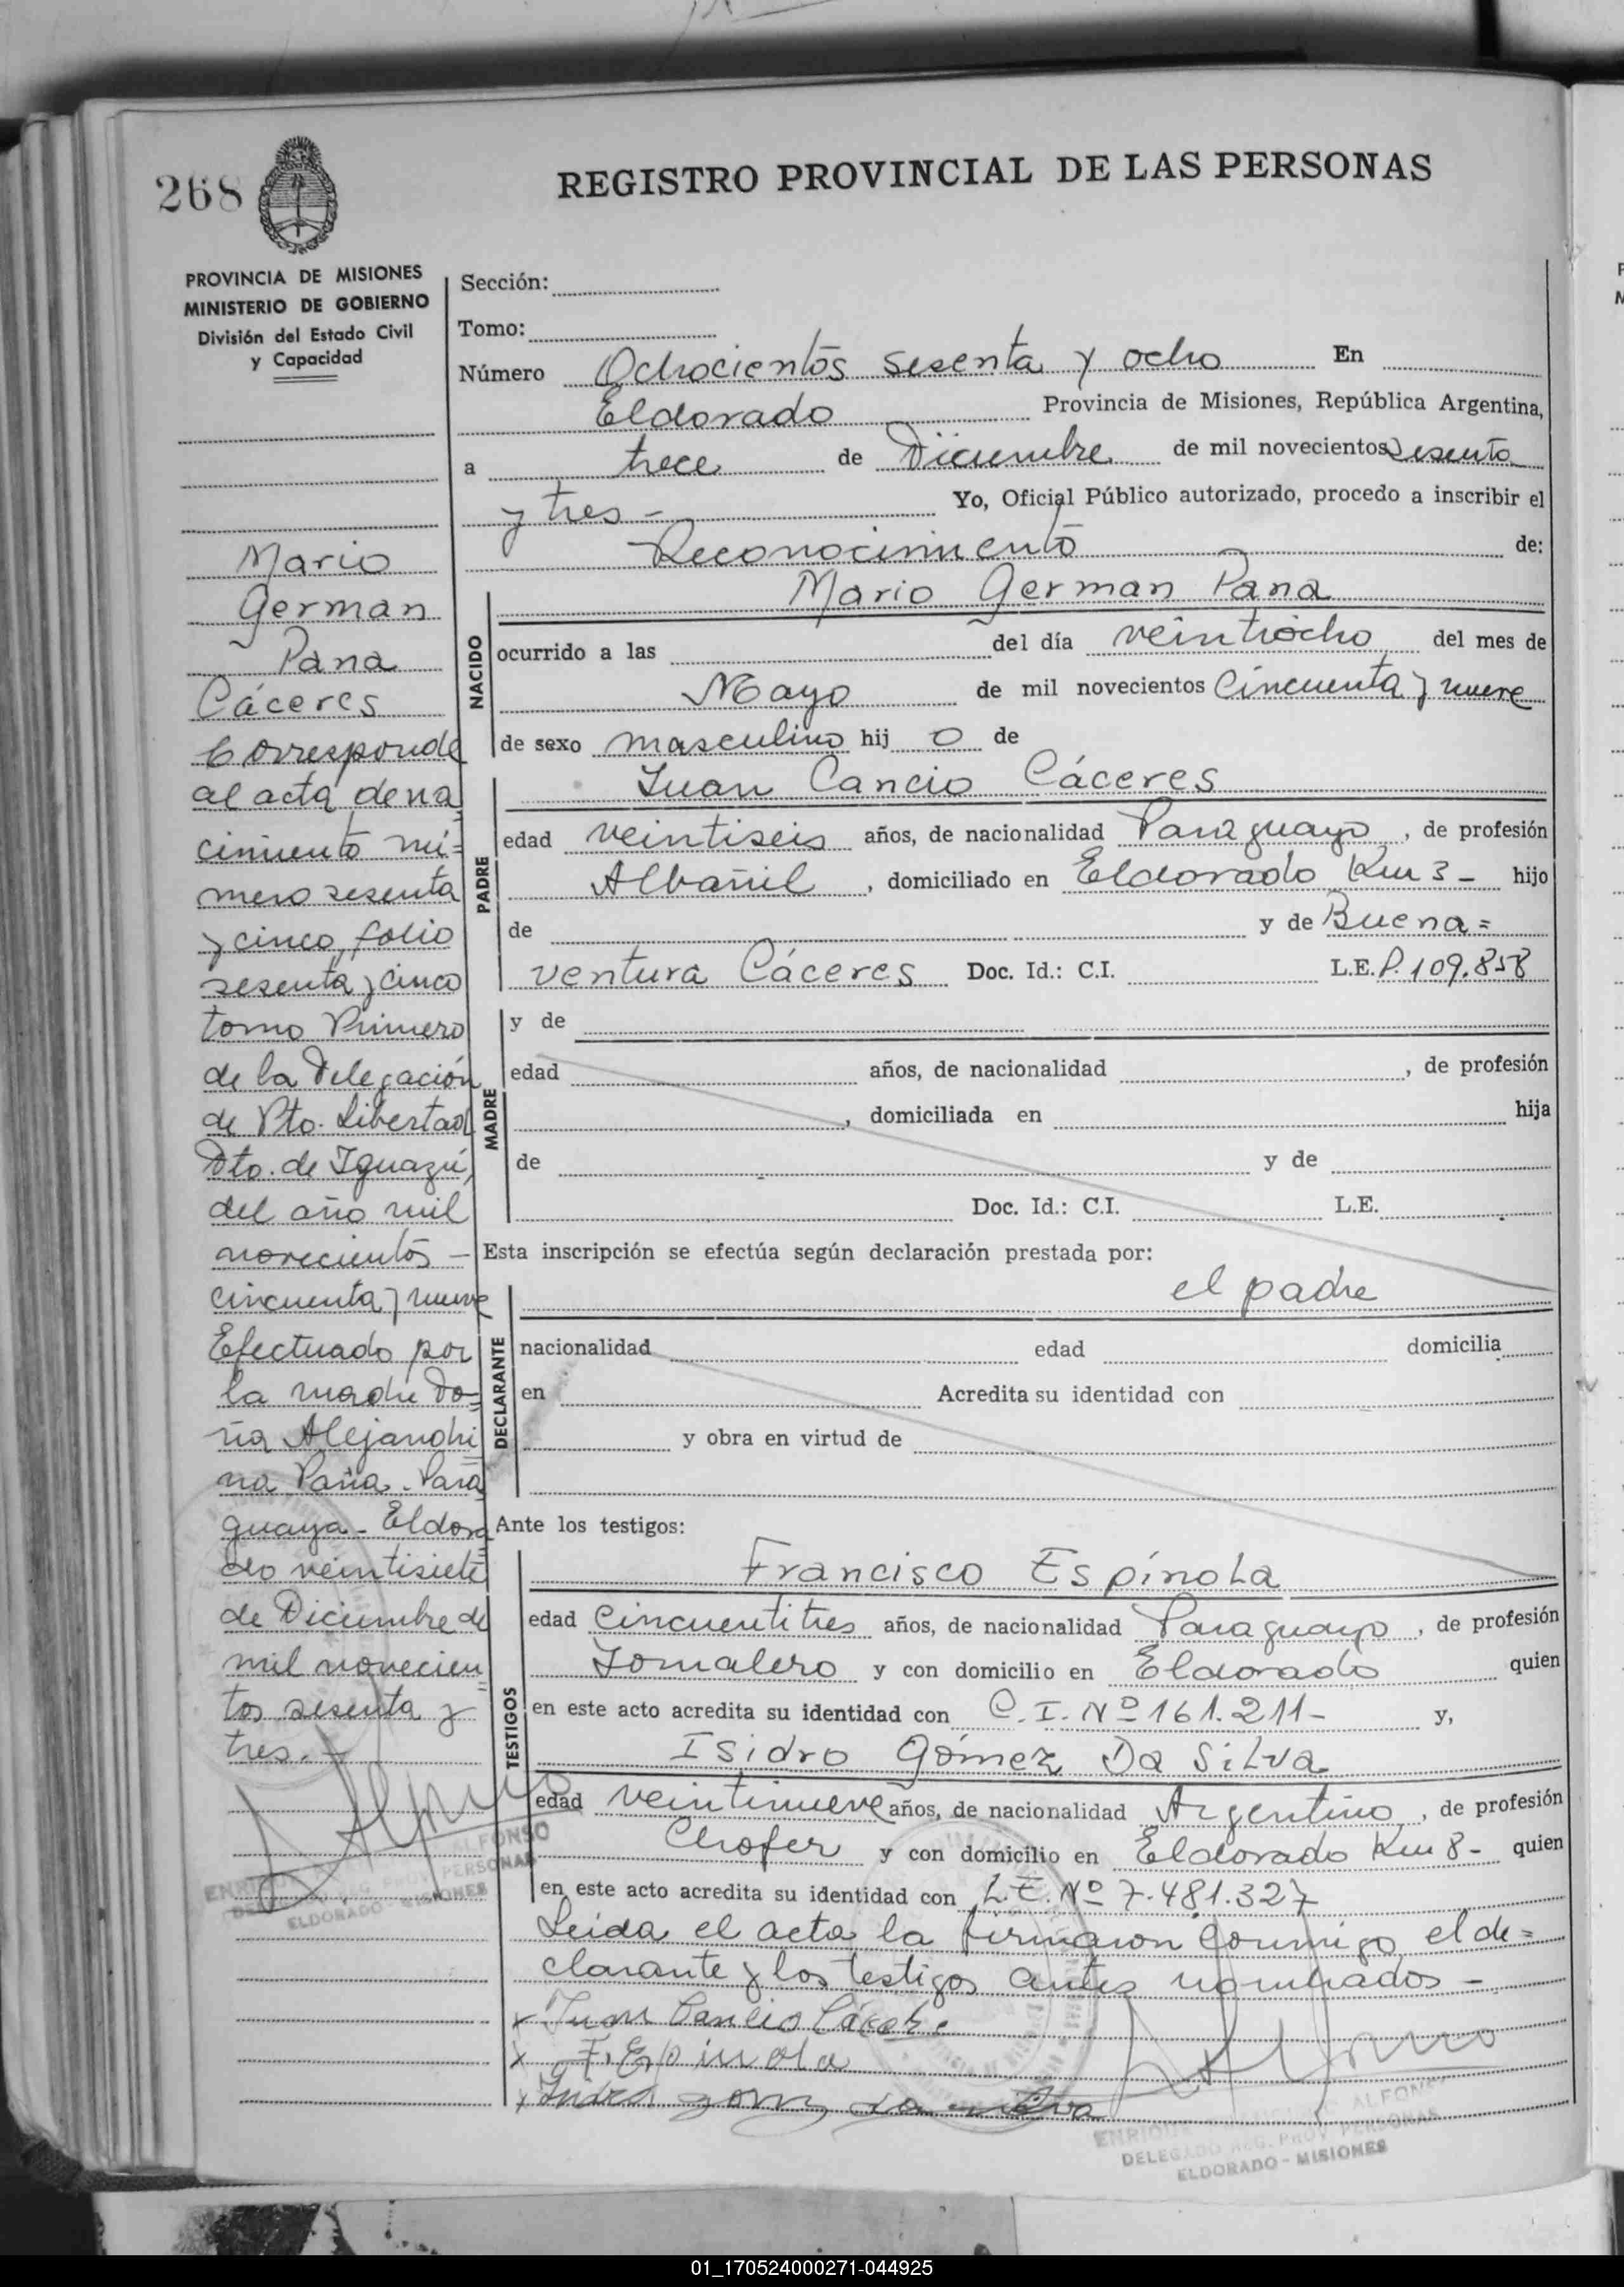 268
REGISTRO PROVINCIAL DE LAS PERSONAS
PROVINCIA DE MISIONES
MINISTERIO DE GOBIERNO
División del Estado Civil
y Capacidad
Mario
German
Pana
Cáceres
Corresponde
al acta de na
cimiento nú=
mero sesenta
y cinco, folio
sesenta y cinco
tomo Primero
de la Delegación
de Pto. Libertad
Dto. de Iguazú,
del año mil
novecientos -
cincuenta y nueve
Efectuado por
la madre Do=
ña Alejandri
na Paña. Para
guaya - Eldora
do veintisiete
de Diciembre de
mil novecien=
tos sesenta y
tres. -
Sección:
Tomo:
Número Ochocientos sesenta y ocho En
Eldorado Provincia de Misiones, República Argentina,
a trece de Diciembre de mil novecientos Sesenta
y tres - Yo, Oficial Público autorizado, procedo a inscribir el
Reconocimiento de:
NACIDO
Mario German Pana
ocurrido a las del día veintiocho del mes de
Mayo de mil novecientos Cincuenta y nueve
de sexo masculino hij o de
PADRE
Juan Cancio Cáceres
edad veintiseis años, de nacionalidad Paraguayo, de profesión
Albañil, domiciliado en Eldorado Km 3 - hijo
de y de Buena=
ventura Cáceres Doc. Id.: C.I. L.E. P. 109.858
MADRE
y de
edad años, de nacionalidad , de profesión
, domiciliada en hija
de y de
Doc. Id.: C.I. L.E.
Esta inscripción se efectúa según declaración prestada por:
DECLARANTE
el padre
nacionalidad edad domicilia
en Acredita su identidad con
y obra en virtud de
Ante los testigos:
TESTIGOS
Francisco Espínola
edad Cincuentitres años, de nacionalidad Paraguayo, de profesión
Jornalero y con domicilio en Eldorado quien
en este acto acredita su identidad con C. I. Nº 161.211- y,
Isidro Gómez Da Silva
edad veintinueve años, de nacionalidad Argentino, de profesión
Chofer y con domicilio en Eldorado Km 8 - quien
en este acto acredita su identidad con L.E. Nº 7.481.327
Leída el acta la firmaron conmigo, el de=
clarante y los testigos antes nombrados -
x Juan Cancio Cácere
x F. Espinola
x
ALFONSO
ELDORADO - MISIONES
ENRIQUE ALFONSO
DELEGADO REG. PROV. PERSONAS
ELDORADO - MISIONES
01_170524000271-044925